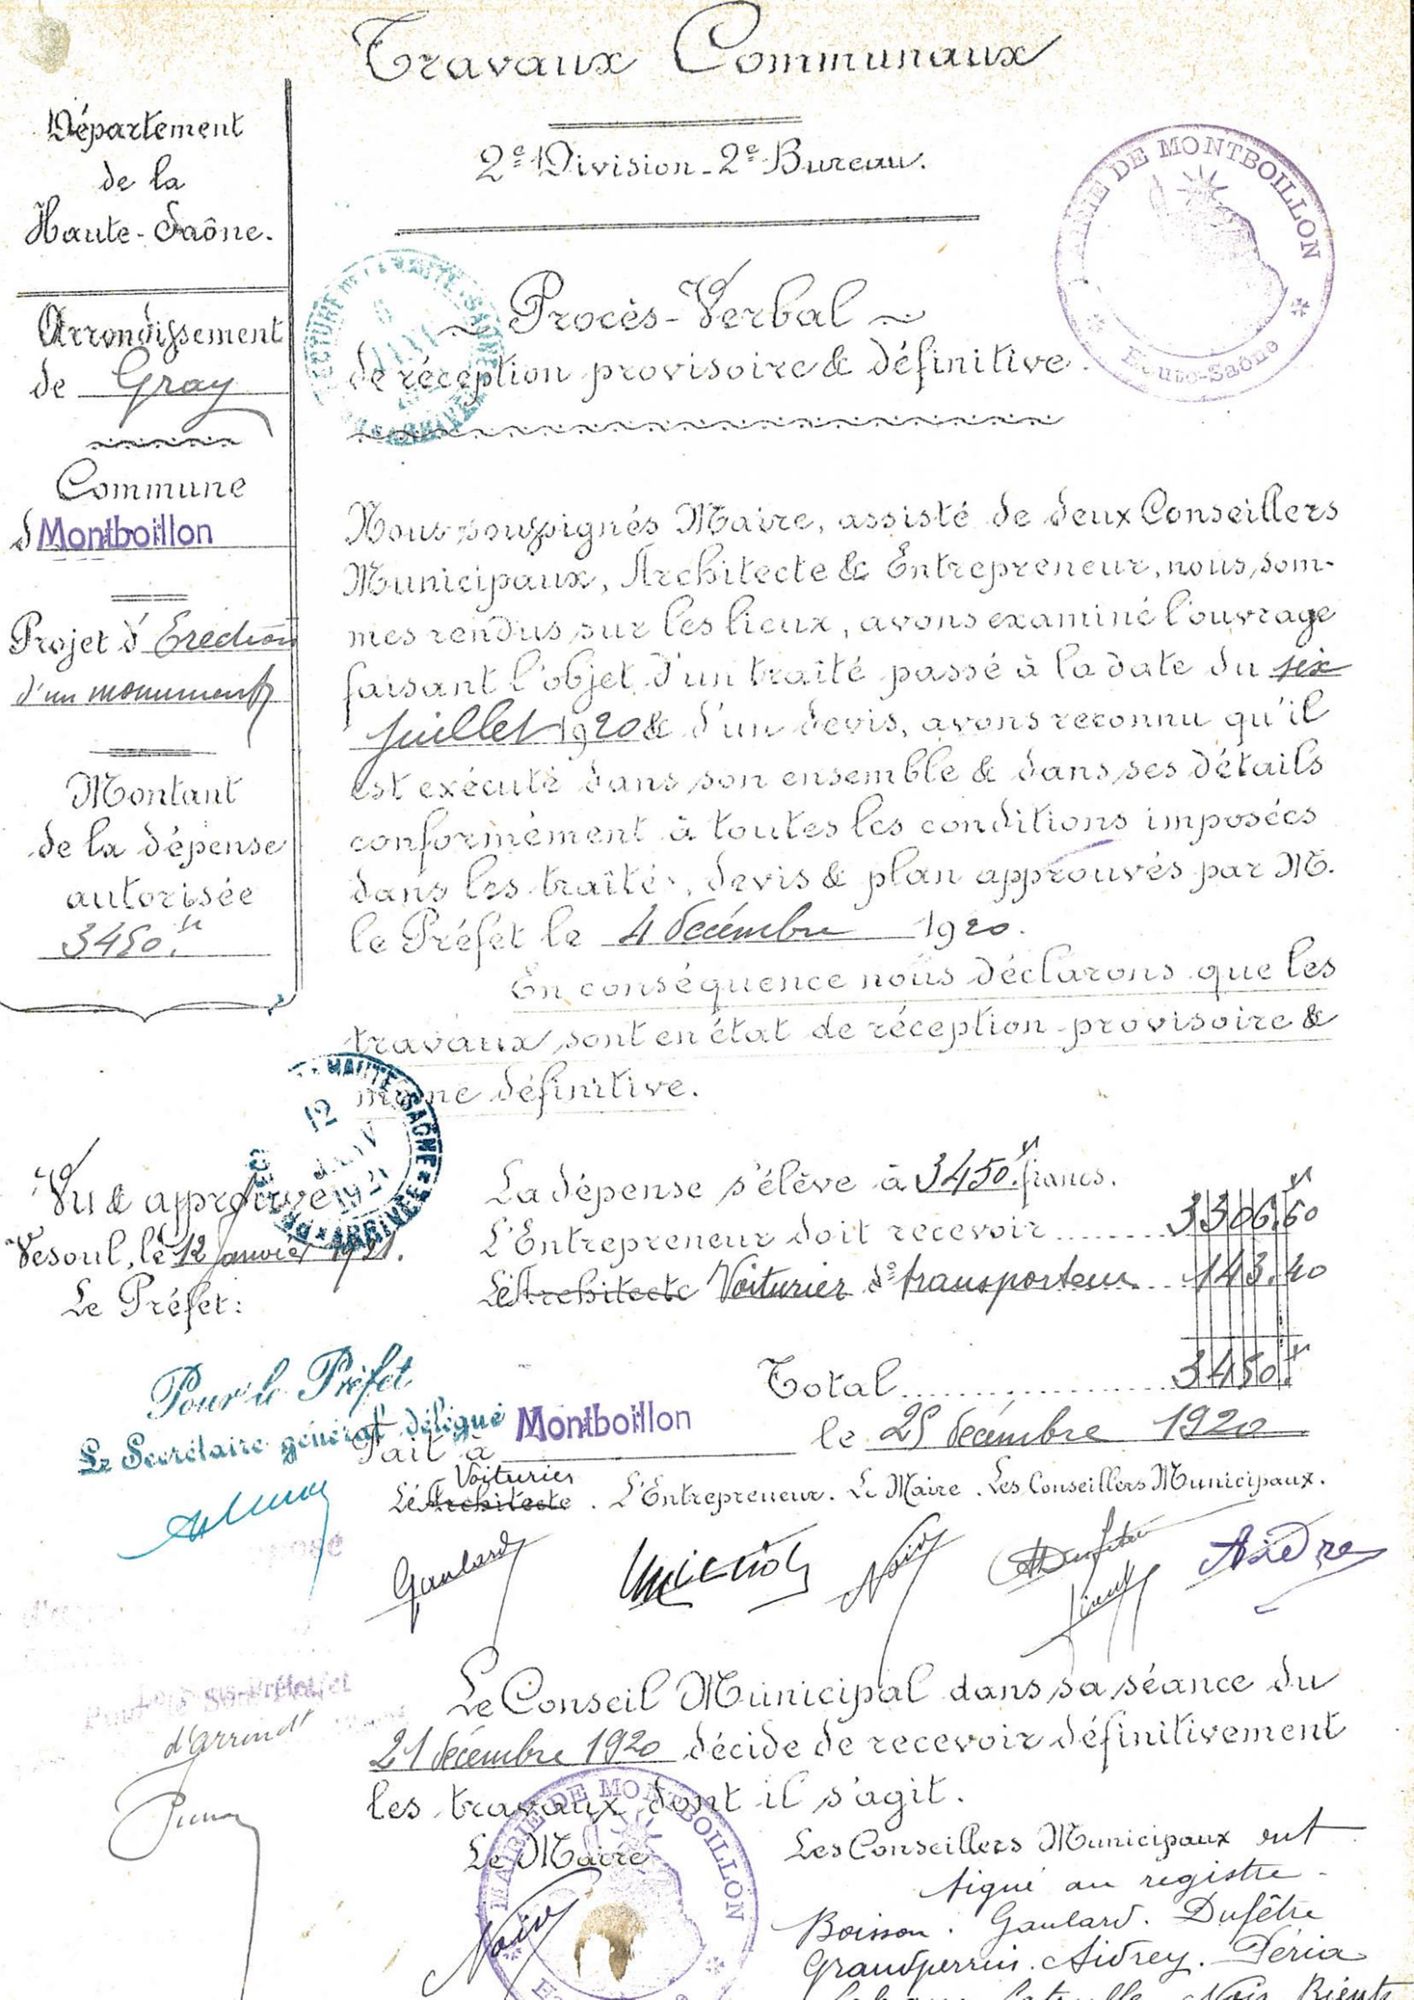 Travaux Communaux
2e Division - 2e Bureau.
Département
de la
Haute-Saône.
Arrondissement
de Gray
Commune
d Montboillon
Projet d'Erection
d'un monument
Montant
de la dépense
autorisée
3450.fr
MAIRIE DE MONTBOILLON
Haute-Saône
Procès-Verbal
de réception provisoire & définitive.
Nous soussignés Maire, assisté de deux Conseillers
Municipaux, Architecte & Entrepreneur, nous som-
mes rendus sur les lieux, avons examiné l'ouvrage
faisant l'objet d'un traité passé à la date du six
juillet 1920 & d'un devis, avons reconnu qu'il
est exécuté dans son ensemble & dans ses détails
conformément à toutes les conditions imposées
dans les traités, devis & plan approuvés par M.
le Préfet le 4 décembre 1920.
En conséquence nous déclarons que les
travaux sont en état de réception provisoire &
même définitive.
HAUTE-SAONE
12
JANV
1921
ARRIVÉE
Vu & approuvé
Vesoul, le 12 janvier 1921.
Le Préfet:
Pour le Préfet
Le Secrétaire général délégué
La dépense s'élève à 3450.fr francs.
L'Entrepreneur doit recevoir ....... 3306.60
L'Architecte Voiturier do transporteur ... 143.40
Total ................ 3450 fr
Fait à Montboillon le 25 décembre 1920
Voiturier
L'Architecte. L'Entrepreneur. Le Maire. Les Conseillers Municipaux.
Gaulard
Noir
Le Sous-Préfet
d'arrondt
Le Conseil Municipal dans sa séance du
21 décembre 1920 décide de recevoir définitivement
les travaux dont il s'agit.
Le Maire
Noir
MAIRIE DE MONTBOILLON
Les Conseillers Municipaux ont
signé au registre
Boisson. Gaulard. Dufêtre
Grandperrin. Aidrey. Péria
Noir